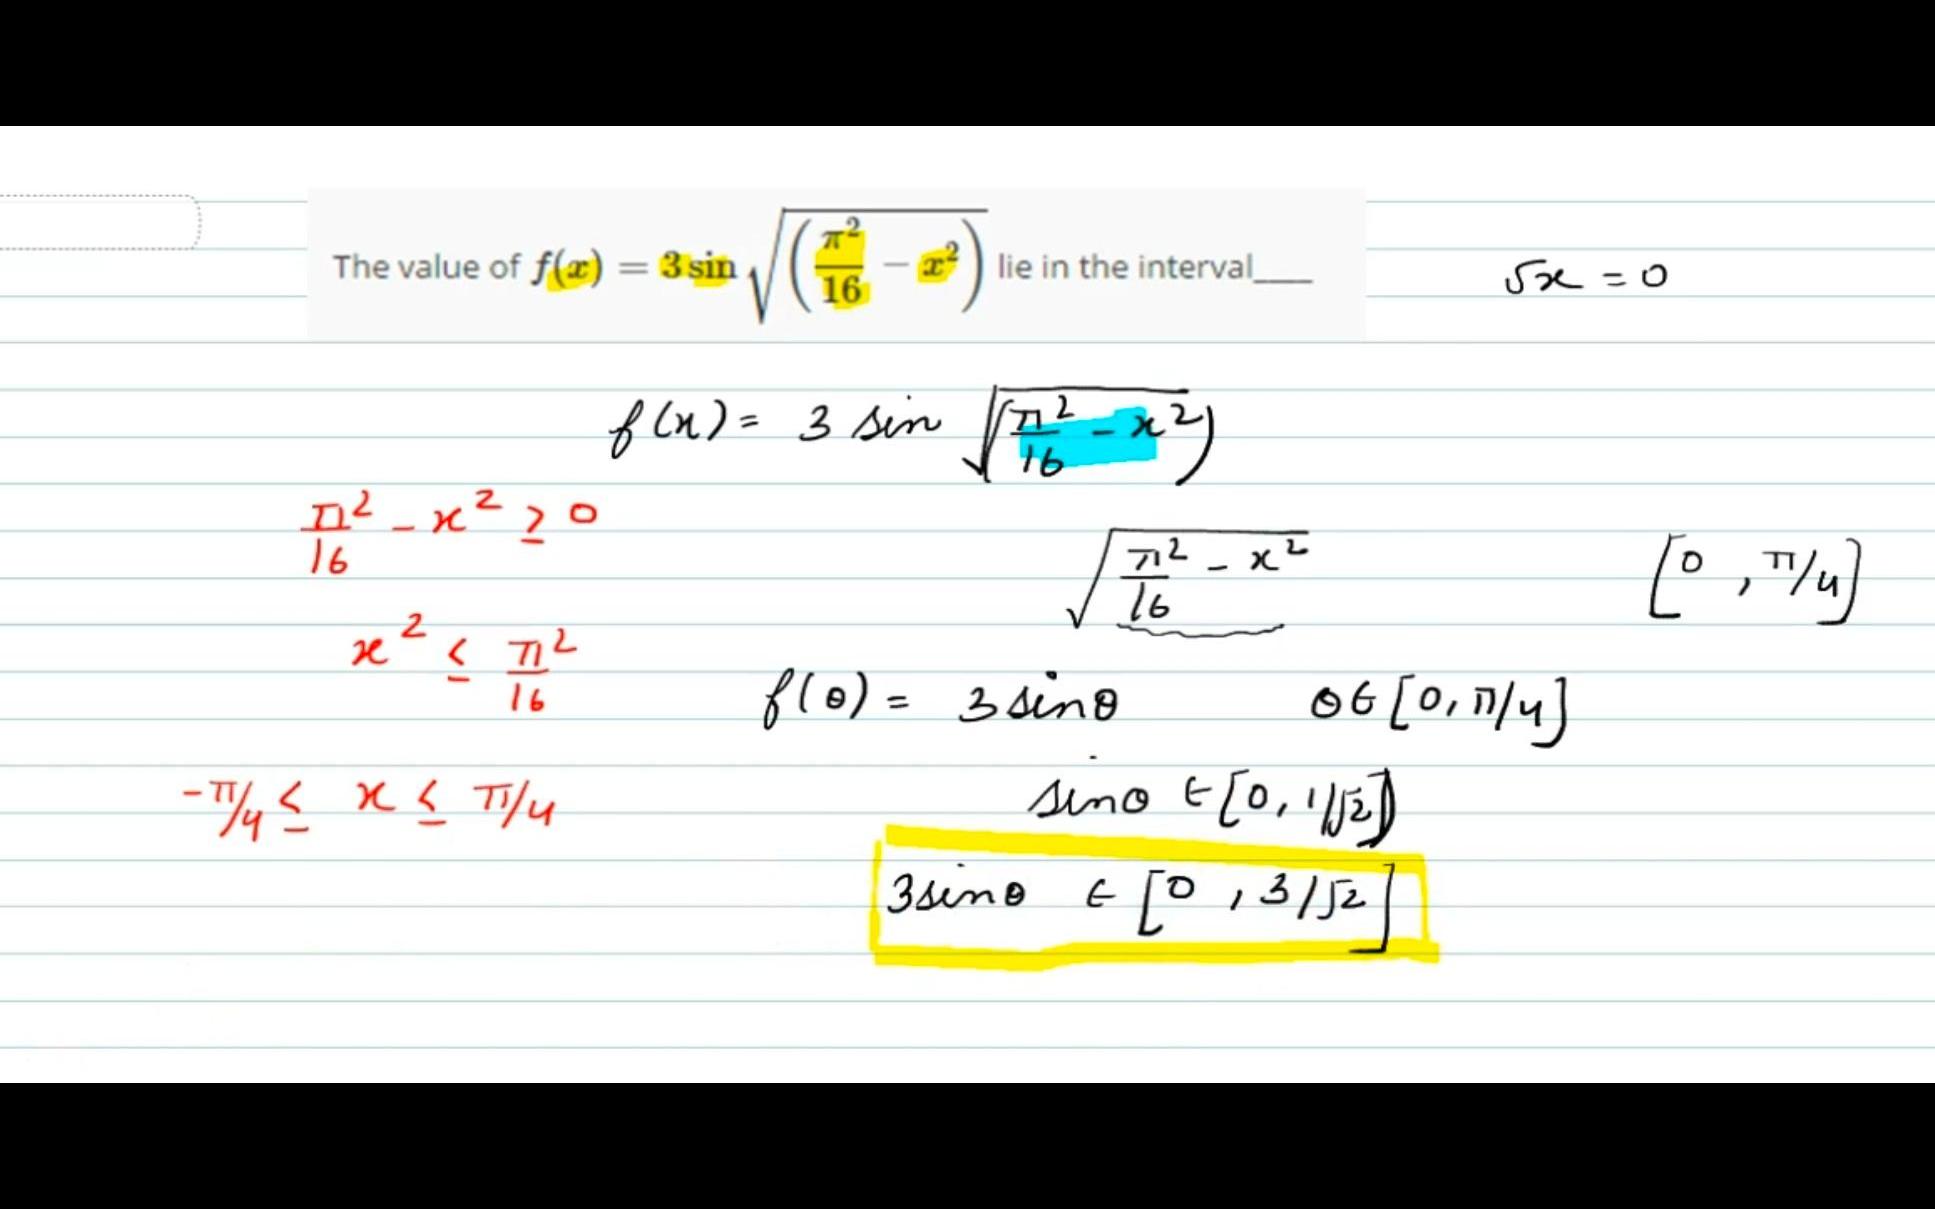 The value of f(x) = 3 sin √(π²/16 − x²) lie in the interval____
√x = 0
f(x) = 3 sin √(π²/16 − x²)
π²/16 − x² ≥ 0
√π²/16 − x²
[0, π/4]
x² ≤ π²/16
f(θ) = 3 sinθ θ∈[0, π/4]
-π/4 ≤ x ≤ π/4
sinθ ∈ [0, 1/√2]
3sinθ ∈ [0, 3/√2]